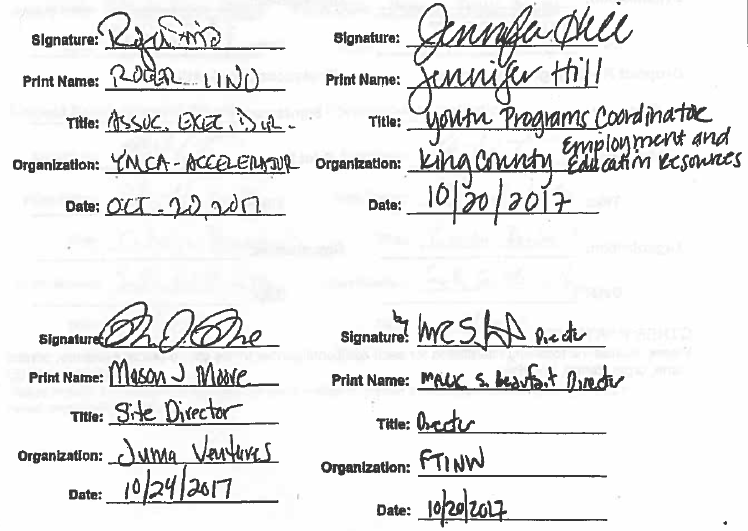 Signature:
Print Name: ROGER LINO
Title: ASSOC. EXEC. DIR.
Organization: YMCA - ACCELERATOR
Date: OCT. 20, 2017
Signature: Jennifer Hill
Print Name: Jennifer Hill
Title: Youth Programs Coordinator
Organization: King County Employment and
Education Resources
Date: 10/20/2017
Signature:
Print Name: Mason J Moore
Title: Site Director
Organization: Juma Ventures
Date: 10/24/2017
Signature: Director
Print Name: Mark S. Beaufait Director
Title: Director
Organization: FTINW
Date: 10/20/2017